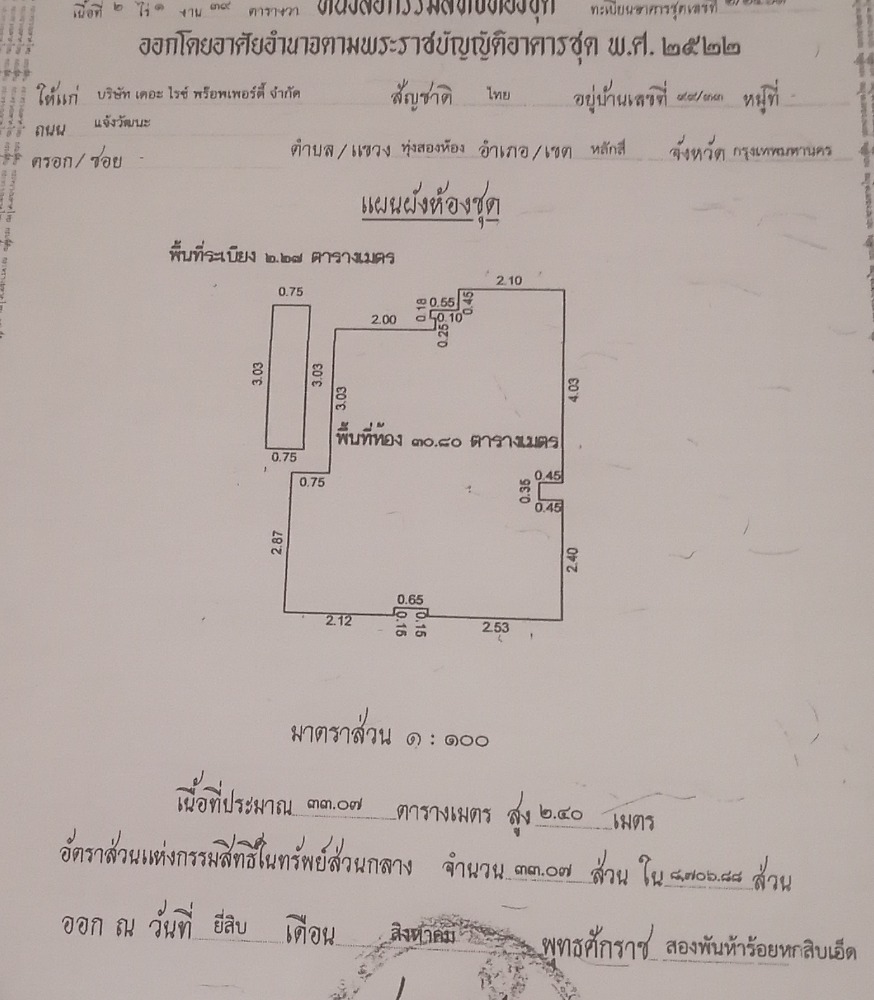 เนื้อที่ ๒ ไร่ ๑ งาน ๓๙ ตารางวา หนังสือกรรมสิทธิ์ห้องชุด ทะเบียนอาคารชุดเลขที่
ออกโดยอาศัยอำนาจตามพระราชบัญญัติอาคารชุด พ.ศ. ๒๕๒๒
ให้แก่ บริษัท เดอะ ไรซ์ พร็อพเพอร์ตี้ จำกัด สัญชาติ ไทย อยู่บ้านเลขที่ ๙๙/๓๓ หมู่ที่ -
ถนน แจ้งวัฒนะ
ตรอก/ซอย - ตำบล/แขวง ทุ่งสองห้อง อำเภอ/เขต หลักสี่ จังหวัด กรุงเทพมหานคร
แผนผังห้องชุด
พื้นที่ระเบียง ๒.๒๗ ตารางเมตร
2.10
0.75
0.18 0.55 0.45
2.00 0.10
0.25
3.03 3.03 3.03 4.03
พื้นที่ห้อง ๓๐.๘๐ ตารางเมตร
0.75
0.75 0.45
0.35
0.45
2.87 2.40
0.65
2.12 0.15 0.15 2.53
มาตราส่วน ๑ : ๑๐๐
เนื้อที่ประมาณ ๓๓.๐๗ ตารางเมตร สูง ๒.๔๐ เมตร
อัตราส่วนแห่งกรรมสิทธิ์ในทรัพย์ส่วนกลาง จำนวน ๓๓.๐๗ ส่วน ใน ๘,๗๐๖.๘๘ ส่วน
ออก ณ วันที่ ยี่สิบ เดือน สิงหาคม พุทธศักราช สองพันห้าร้อยหกสิบเอ็ด